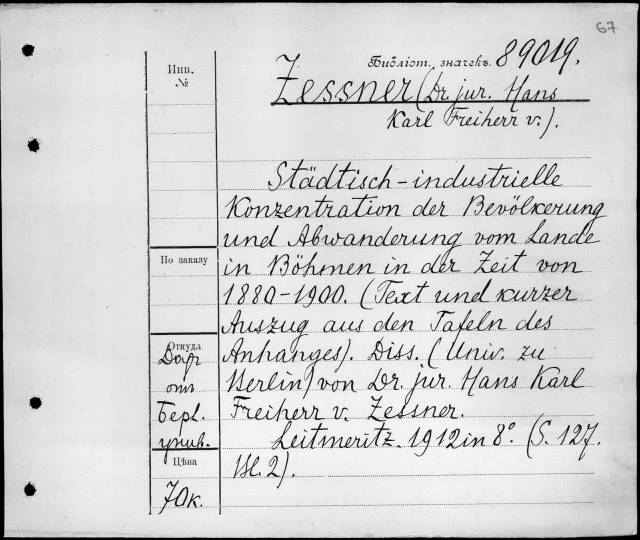 67
Библіот. значекъ. 89019.
Инв.
№
Zessner (Dr. jur. Hans
Karl Freiherr v.).
Städtisch-industrielle
Konzentration der Bevölkerung
und Abwanderung vom Lande
in Böhmen in der Zeit von
1880-1900. (Text und kurzer
Auszug aus den Tafeln des
Anhanges). Diss. (Univ. zu
Berlin) von Dr. jur. Hans Karl
Freiherr v. Zessner.
Leitmeritz. 1912 in 8°. (S. 127.
Bl. 2).
По заказу
Откуда
Дар
отъ
Берл.
унив.
Цѣна
70к.